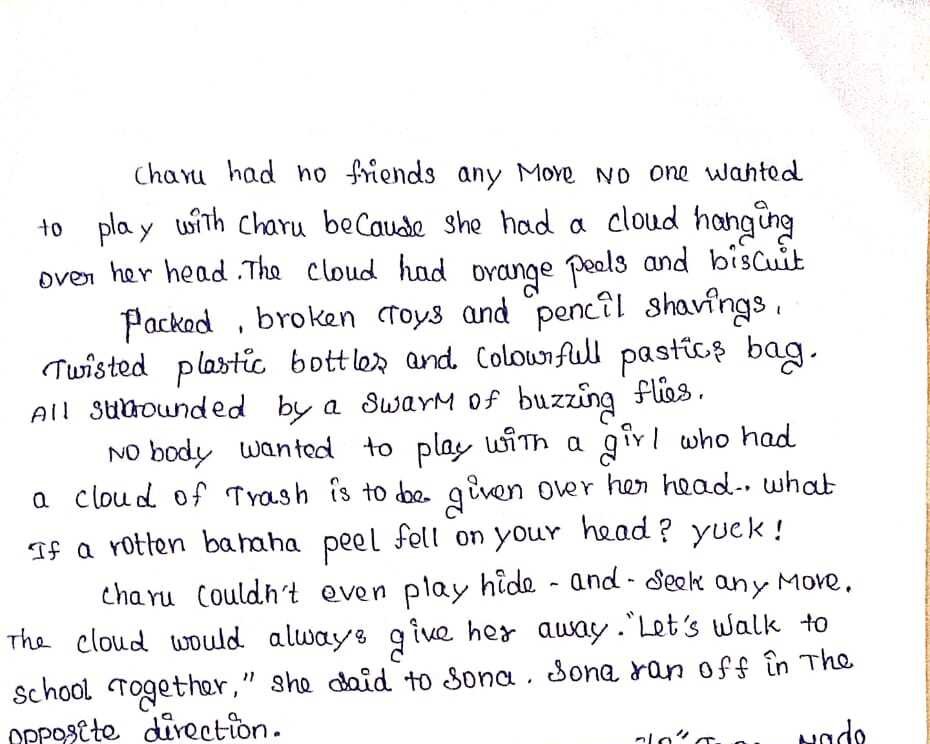 Charu had no friends any More No one wanted
to play with Charu beCause she had a cloud hanging
over her head. The cloud had orange peels and biscuit
Packed, broken Toys and pencil shavings,
Twisted plastic bottles and Colourfull pastics bag.
All surrounded by a swarm of buzzing flies.
No body wanted to play with a girl who had
a cloud of Trash is to be given over her head.. what
If a rotten banana peel fell on your head? yuck!
Charu Couldn't even play hide - and - seek any More.
The cloud would always give her away. "Let's Walk to
school Together," she said to Sona. Sona ran off in The
opposite direction.